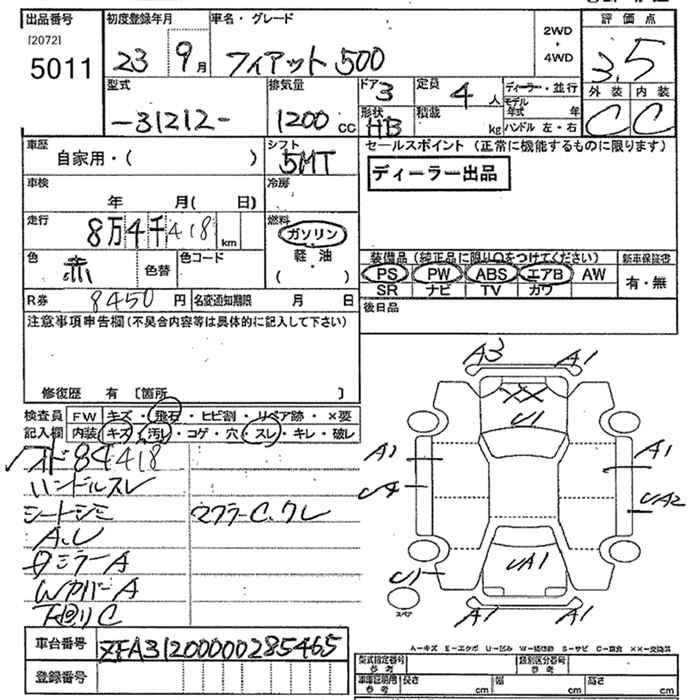 出品番号 初度登録年月 車名・グレード 2WD・4WD 評価点
[2072]
5011 23 9月 フィアット 500 3.5
型式 排気量 ドア 3 定員 4人 ディーラー・並行 外装 内装
モデル年式 年
-31212- 1200 CC 形状 HB 積載 kg ハンドル 左・右 C C
車歴 シフト セールスポイント (正常に機能するものに限ります)
自家用・( ) 5MT ディーラー出品
車検 冷房
年 月( 日)
走行 燃料
8万4千418km ガソリン
軽油
( )
色 赤 色替 色コード 装備品 (純正品に限り○をつけてください) 新車保証書
PS PW ABS エアB AW 有・無
SR ナビ TV カワ
R券 8450円 名変通知期限 月 日 後日品
注意事項申告欄 (不具合内容等は具体的に記入して下さい)
修復歴 有 [箇所 ]
検査員 FW キズ・飛石・ヒビ割・リペア跡・×要
記入欄 内装 キズ・汚レ・コゲ・穴・スレ・キレ・破レ
メド84418
ハンドルスレ
シートシミ マフラーC、クレ
A、レ
ミラーA
WカバーA
下回りC
A3 A1
U1
A1 A1
UA UA2
UA1
U1
スペア
A1 A1
A-キズ E-エクボ U-凹み W-補修跡 S-サビ C-腐食 XX-交換済
車台番号 ZFA31200000285465
登録番号
型式指定番号 参考 類別区分番号 参考
車庫証明用 参考 長さ cm 幅 cm 高さ cm